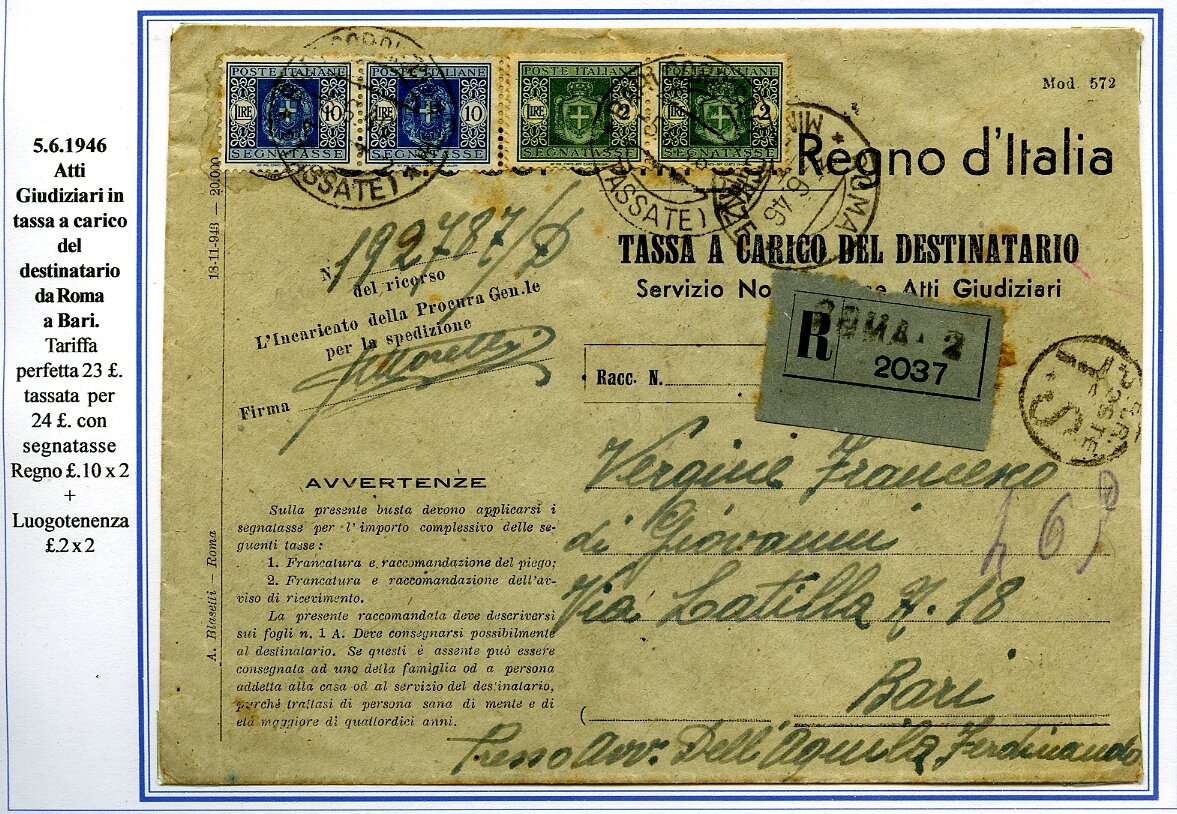 5.6.1946
Atti
Giudiziari in
tassa a carico
del
destinatario
da Roma
a Bari.
Tariffa
perfetta 23 £.
tassata per
24 £. con
segnatasse
Regno £.10 x 2
+
Luogotenenza
£.2 x 2
POSTE ITALIANE
LIRE 10
SEGNATASSE
POSTE ITALIANE
LIRE 10
SEGNATASSE
POSTE ITALIANE
LIRE 2
SEGNATASSE
POSTE ITALIANE
LIRE 2
SEGNATASSE
(TASSATE)
(TASSATE)
ROMA
6.46
Mod. 572
Regno d'Italia
18-11-943 — 20.000
N. 192787/D
del ricorso
L'Incaricato della Procura Gen.le
per la spedizione
Firma
TASSA A CARICO DEL DESTINATARIO
Servizio Atti Giudiziari
R ROMA. 2
2037
Racc. N.
POSTE
S.
Vergine Francesco
di Giovanni
Via Latilla N. 18
Bari
Presso Avv. Dell'Aquila Ferdinando
AVVERTENZE
Sulla presente busta devono applicarsi i
segnatasse per l'importo complessivo delle se-
guenti tasse:
1. Francatura e raccomandazione del piego;
2. Francatura e raccomandazione dell'av-
viso di ricevimento.
La presente raccomandata deve descriversi
sui fogli n. 1 A. Deve consegnarsi possibilmente
al destinatario. Se questi è assente può essere
consegnata ad uno della famiglia od a persona
addetta alla casa od al servizio del destinatario,
purchè trattasi di persona sana di mente e di
età maggiore di quattordici anni.
A. Blasetti – Roma